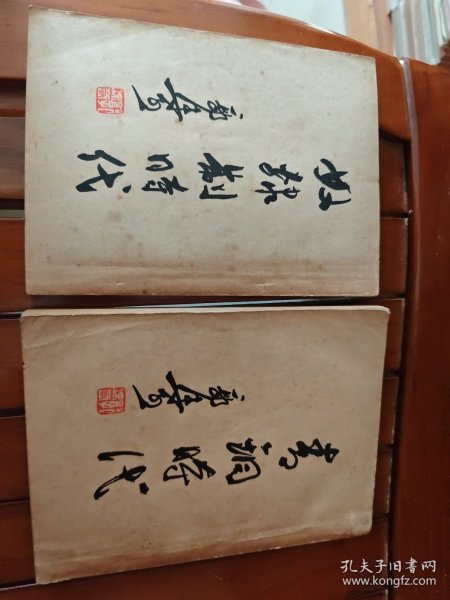 奴隶制时代
郭沫若
青铜时代
郭沫若
孔夫子旧书网
www.kongfz.com